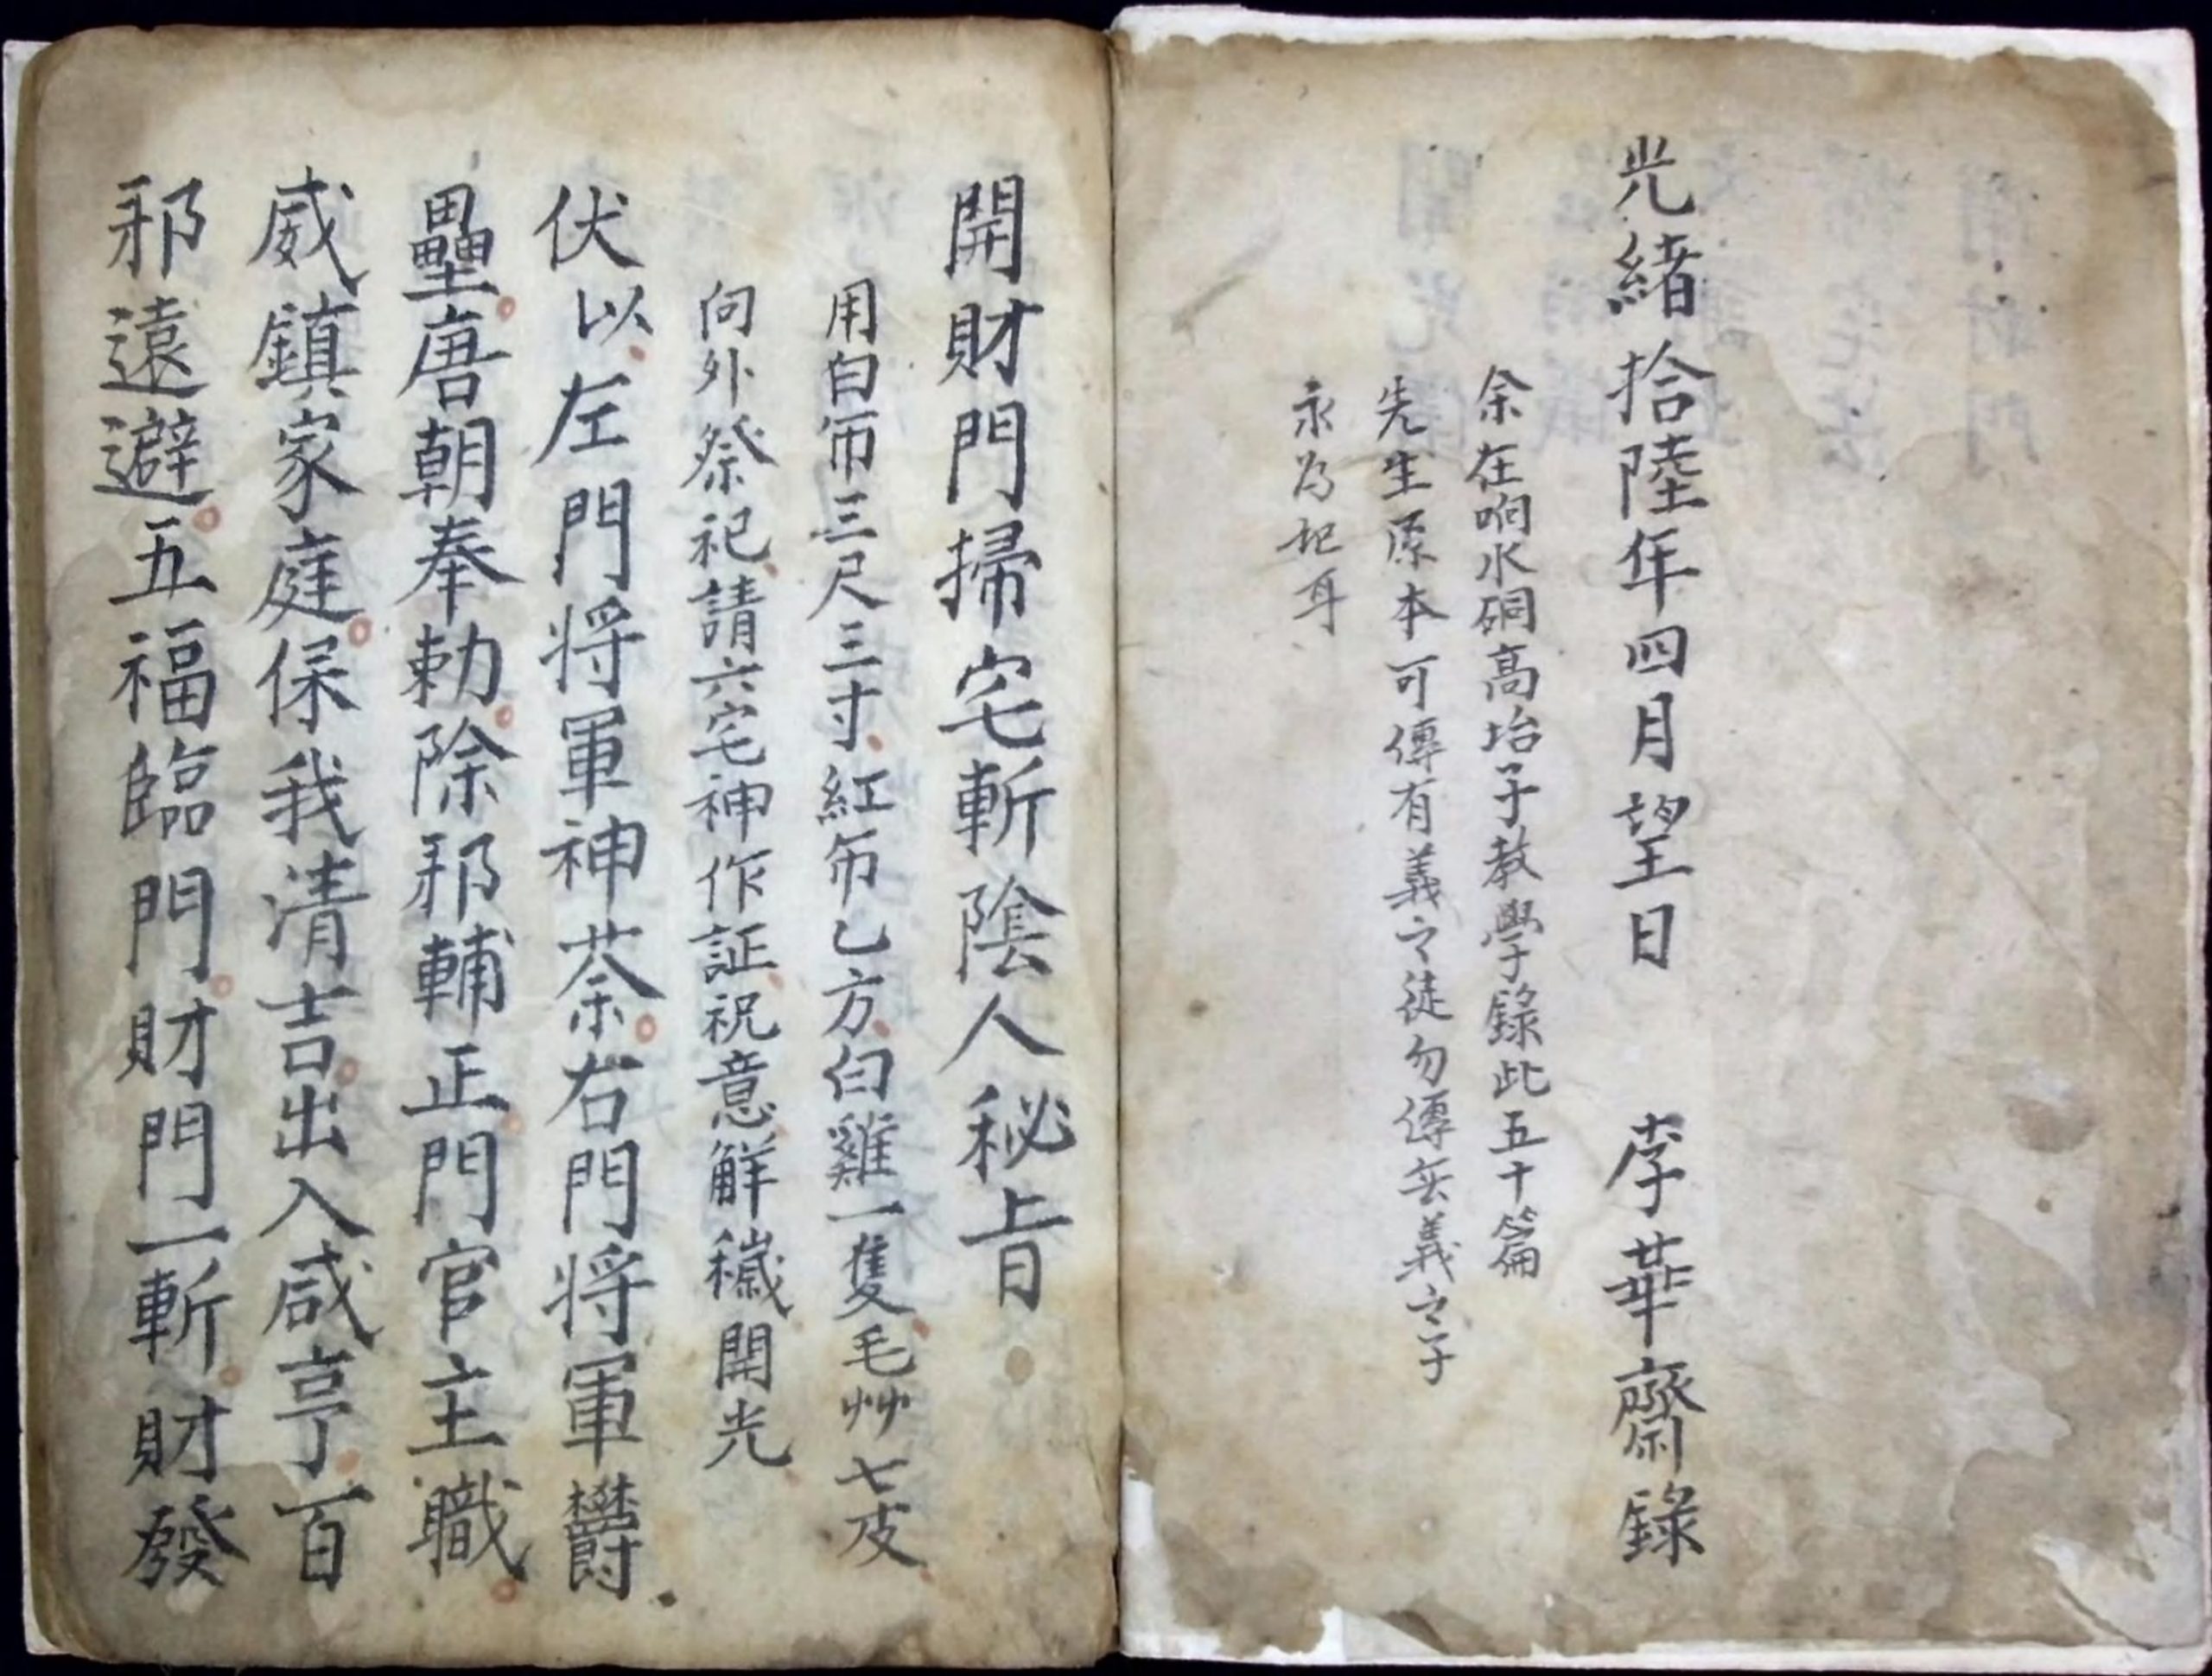 光緒拾陸年四月望日 李華齋錄
余在响水硐高坮子教學錄此五十篇
先生原本可傳有義之徒勿傳無義之子
永為記耳
開財門掃宅斬陰人秘旨
用白布三尺三寸紅布乙方白雞一隻毛艸七皮
向外祭祀請六宅神作証祝意解穢開光
伏以左門將軍神荼右門將軍欝
壘唐朝奉勅除邪輔正門官主職
威鎮家庭保我清吉出入咸亨百
邪遠避五福臨門財門一斬財發